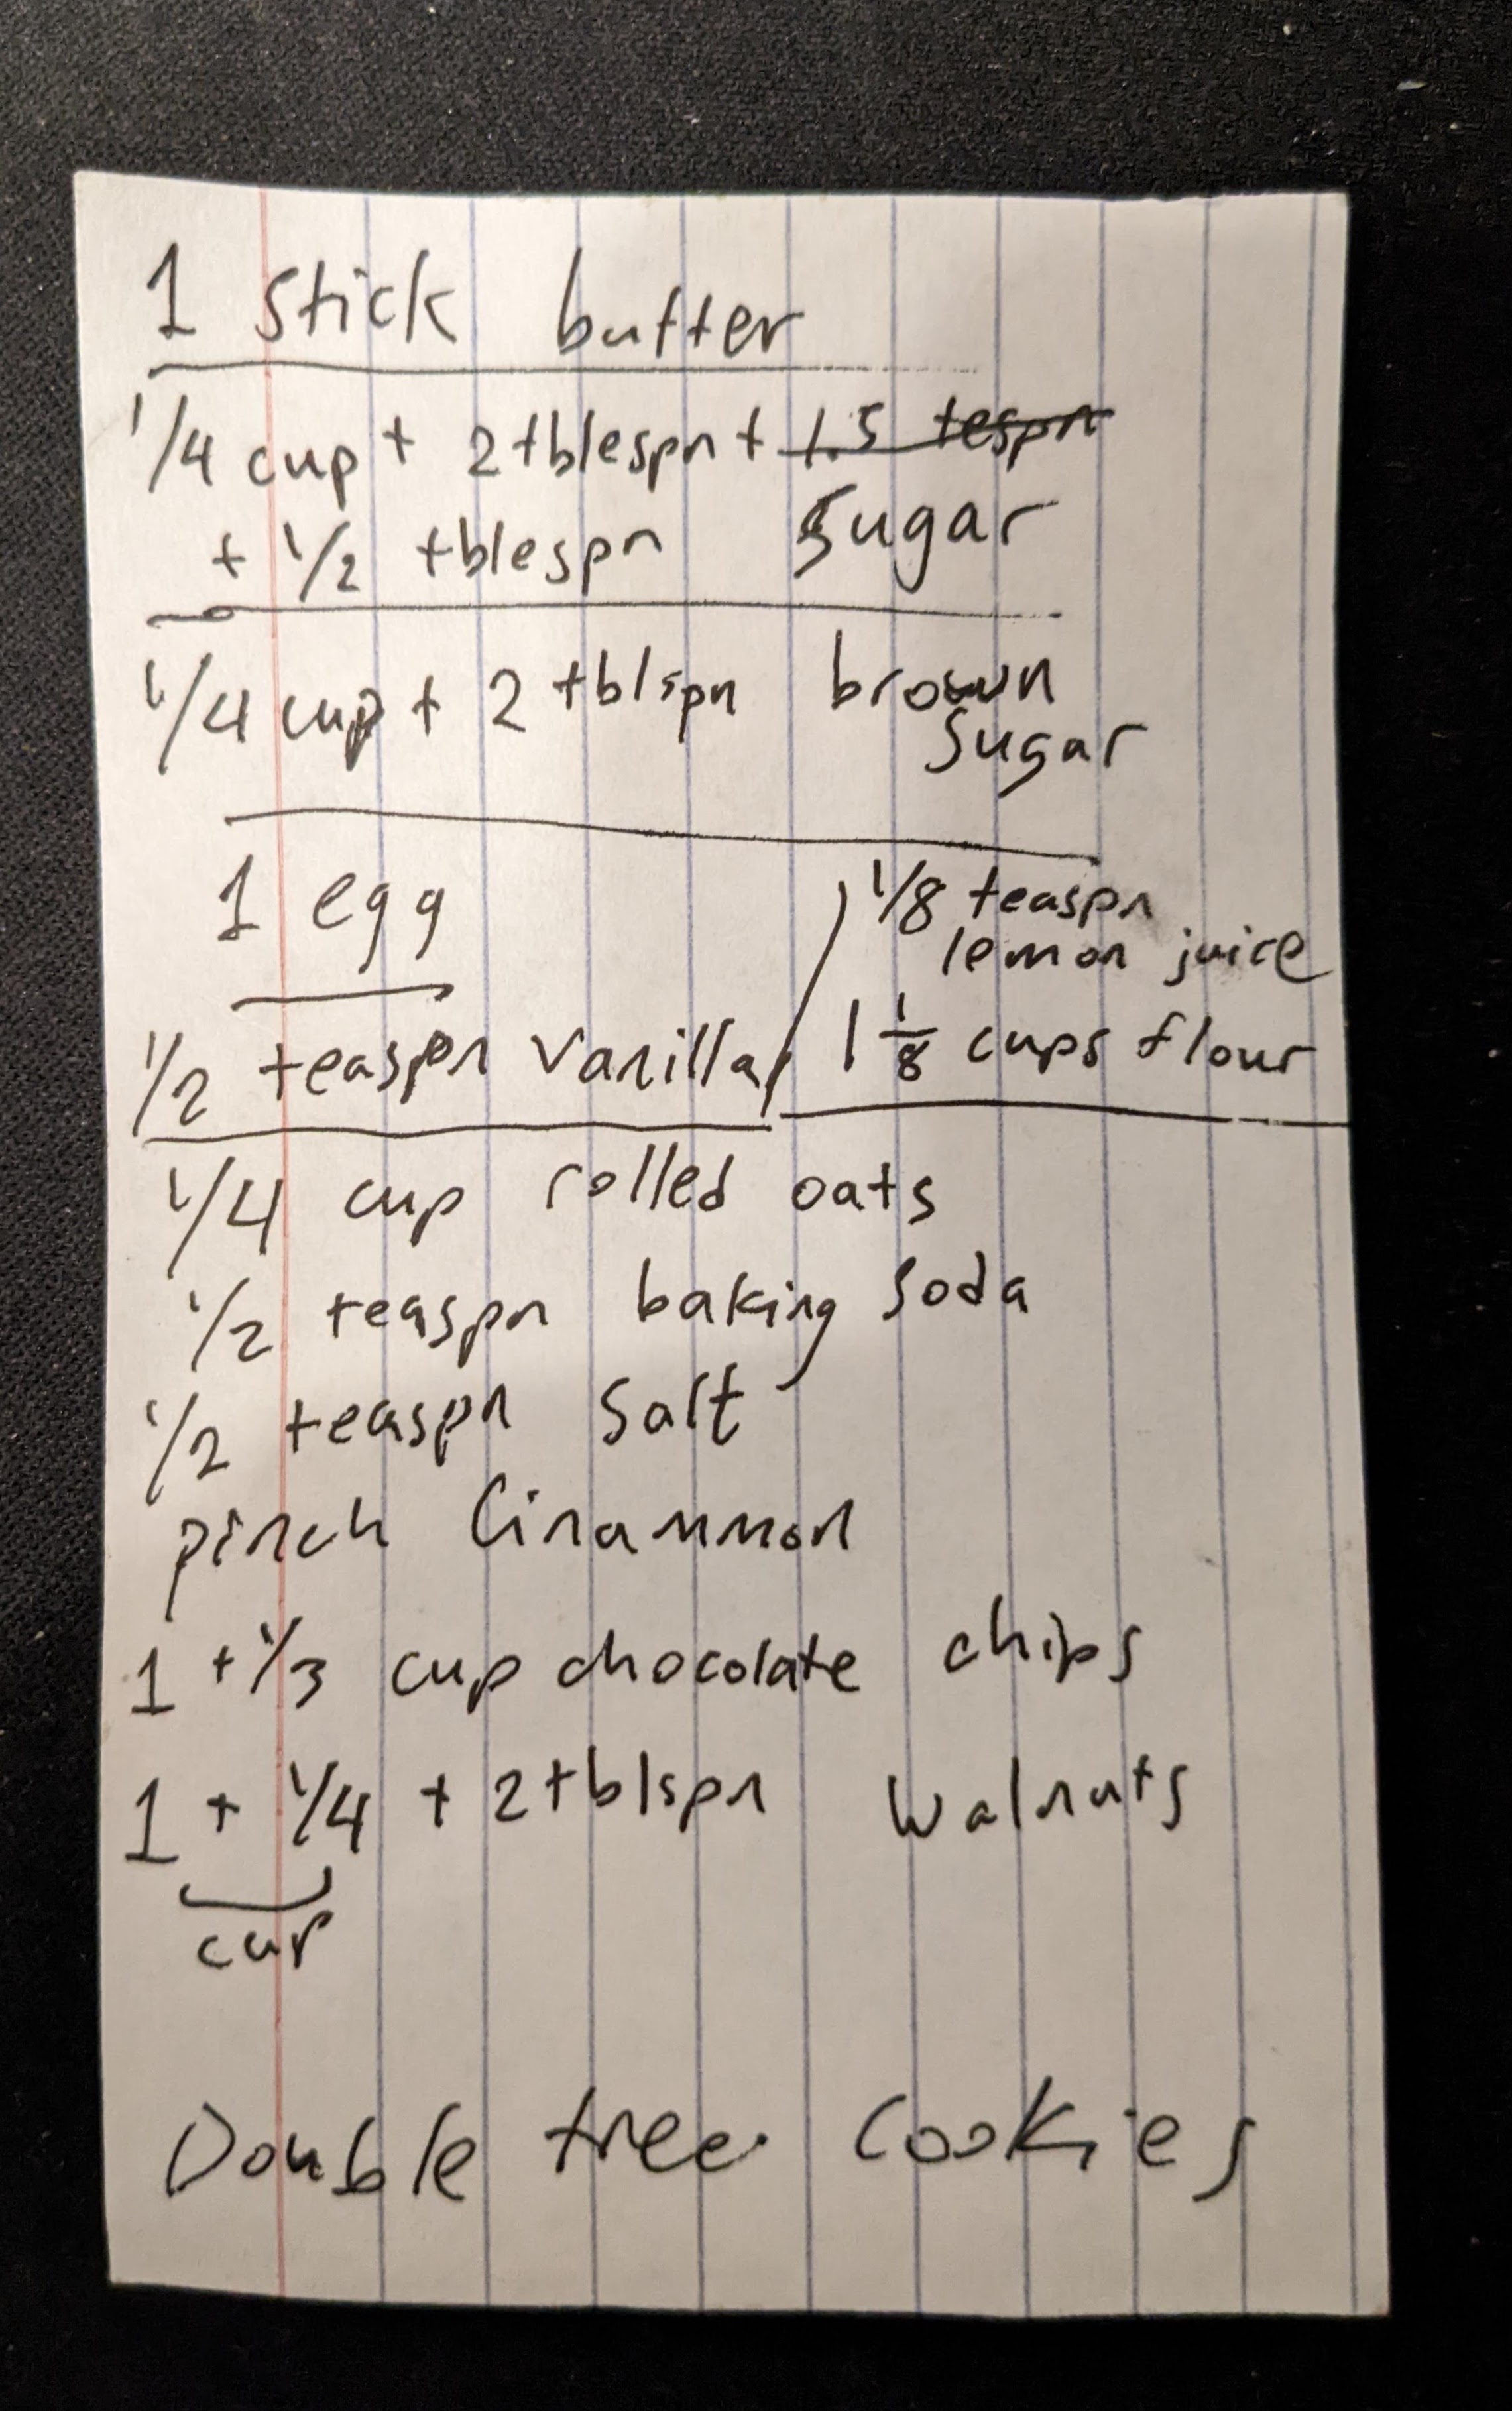 1 stick butter
1/4 cup + 2 tblespn + 1.5 tespn
+ 1/2 tblespn sugar
1/4 cup + 2 tblspn brown
sugar
1 egg
1/2 teaspn vanilla
1/8 teaspn
lemon juice
1 1/8 cups flour
1/4 cup rolled oats
1/2 teaspn baking soda
1/2 teaspn salt
pinch Cinammon
1 + 1/3 cup chocolate chips
1 + 1/4 + 2 tblspn walnuts
cup
Double tree Cookies